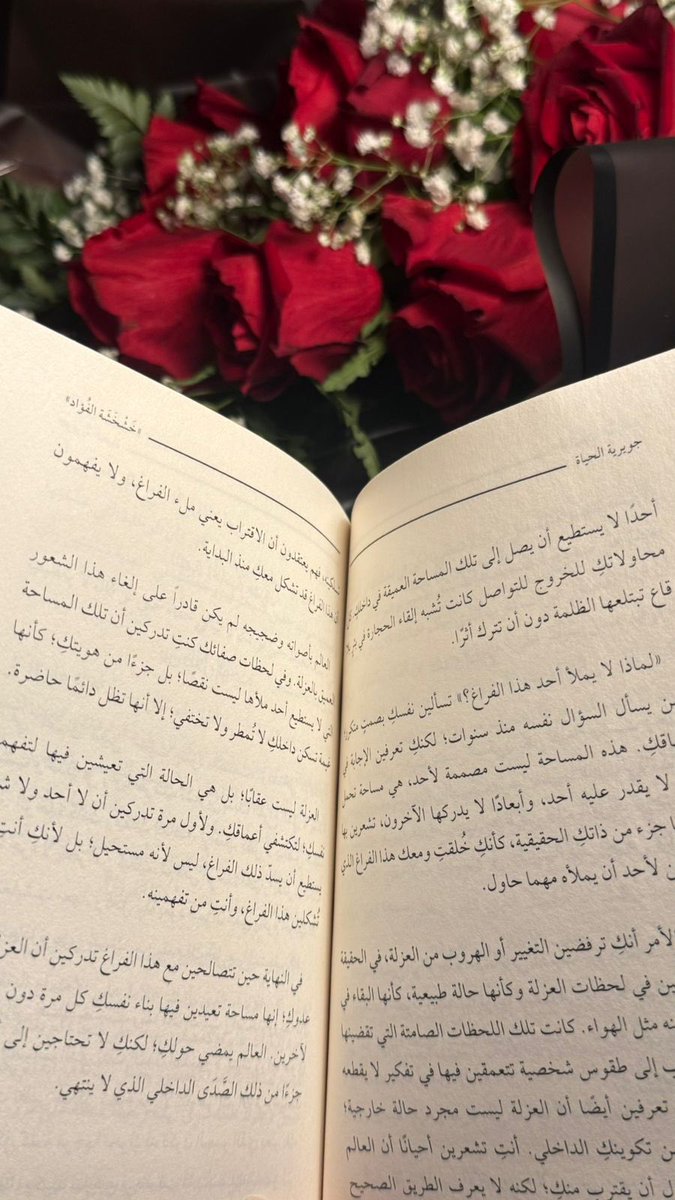 جويرية الحياة
أحدًا لا يستطيع أن يصل إلى تلك المساحة العميقة في داخلكِ.
محاولاتكِ للخروج للتواصل كانت تُشبه إلقاء الحجارة في بئرٍ
قاع تبتلعها الظلمة دون أن تترك أثرًا.
«لماذا لا يملأ أحد هذا الفراغ؟» تسألين نفسكِ بصمتٍ
من يسأل السؤال نفسه منذ سنوات؛ لكنكِ تعرفين الإجابة في
هذه المساحة ليست مصممة لأحد، هي مساحة
لا يقدر عليه أحد، وأبعادًا لا يدركها الآخرون، تشعرين بها
جزء من ذاتكِ الحقيقية، كأنكِ خُلقتِ ومعك هذا الفراغ الذي
لأحد أن يملأه مهما حاول.
الأمر أنكِ ترفضين التغيير أو الهروب من العزلة، في الحقيقة
في لحظات العزلة وكأنها حالة طبيعية، كأنها البقاء في
مثل الهواء. كانت تلك اللحظات الصامتة التي تقضينها
إلى طقوس شخصية تتعمقين فيها في تفكير لا يقطعه
تعرفين أيضًا أن العزلة ليست مجرد حالة خارجية؛
من تكوينكِ الداخلي. أنتِ تشعرين أحيانًا أن العالم
أن يقترب منكِ؛ لكنه لا يعرف الطريق الصحيح
«خَشْخَشَة الفُؤاد»
فهم يعتقدون أن الاقتراب يعني ملء الفراغ، ولا يفهمون
أن هذا الفراغ قد تشكل معكِ منذ البداية.
العالم بأصواته وضجيجه لم يكن قادراً على إلغاء هذا الشعور
العميق بالعزلة. وفي لحظات صفائك كنتِ تدركين أن تلك المساحة
التي لا يستطيع أحد ملأها ليست نقصًا؛ بل جزءًا من هويتكِ؛ كأنها
غيمة تسكن داخلكِ لا تُمطر ولا تختفي؛ إلا أنها تظل دائمًا حاضرة.
العزلة ليست عقابًا؛ بل هي الحالة التي تعيشين فيها
نفسكِ؛ لتكتشفي أعماقكِ. ولأول مرة تدركين أن لا أحد ولا
يستطيع أن يسدّ ذلك الفراغ، ليس لأنه مستحيل؛ بل لأنكِ أنتِ
تُشكلين هذا الفراغ، وأنتِ من تفهمينه.
في النهاية حين تتصالحين مع هذا الفراغ تدركين أن
عدوكِ؛ إنها مساحة تعيدين فيها بناء نفسكِ كل مرة دون
لآخرين. العالم يمضي حولكِ؛ لكنكِ لا تحتاجين إلى
جزءًا من ذلك الصَّدَى الداخلي الذي لا ينتهي.